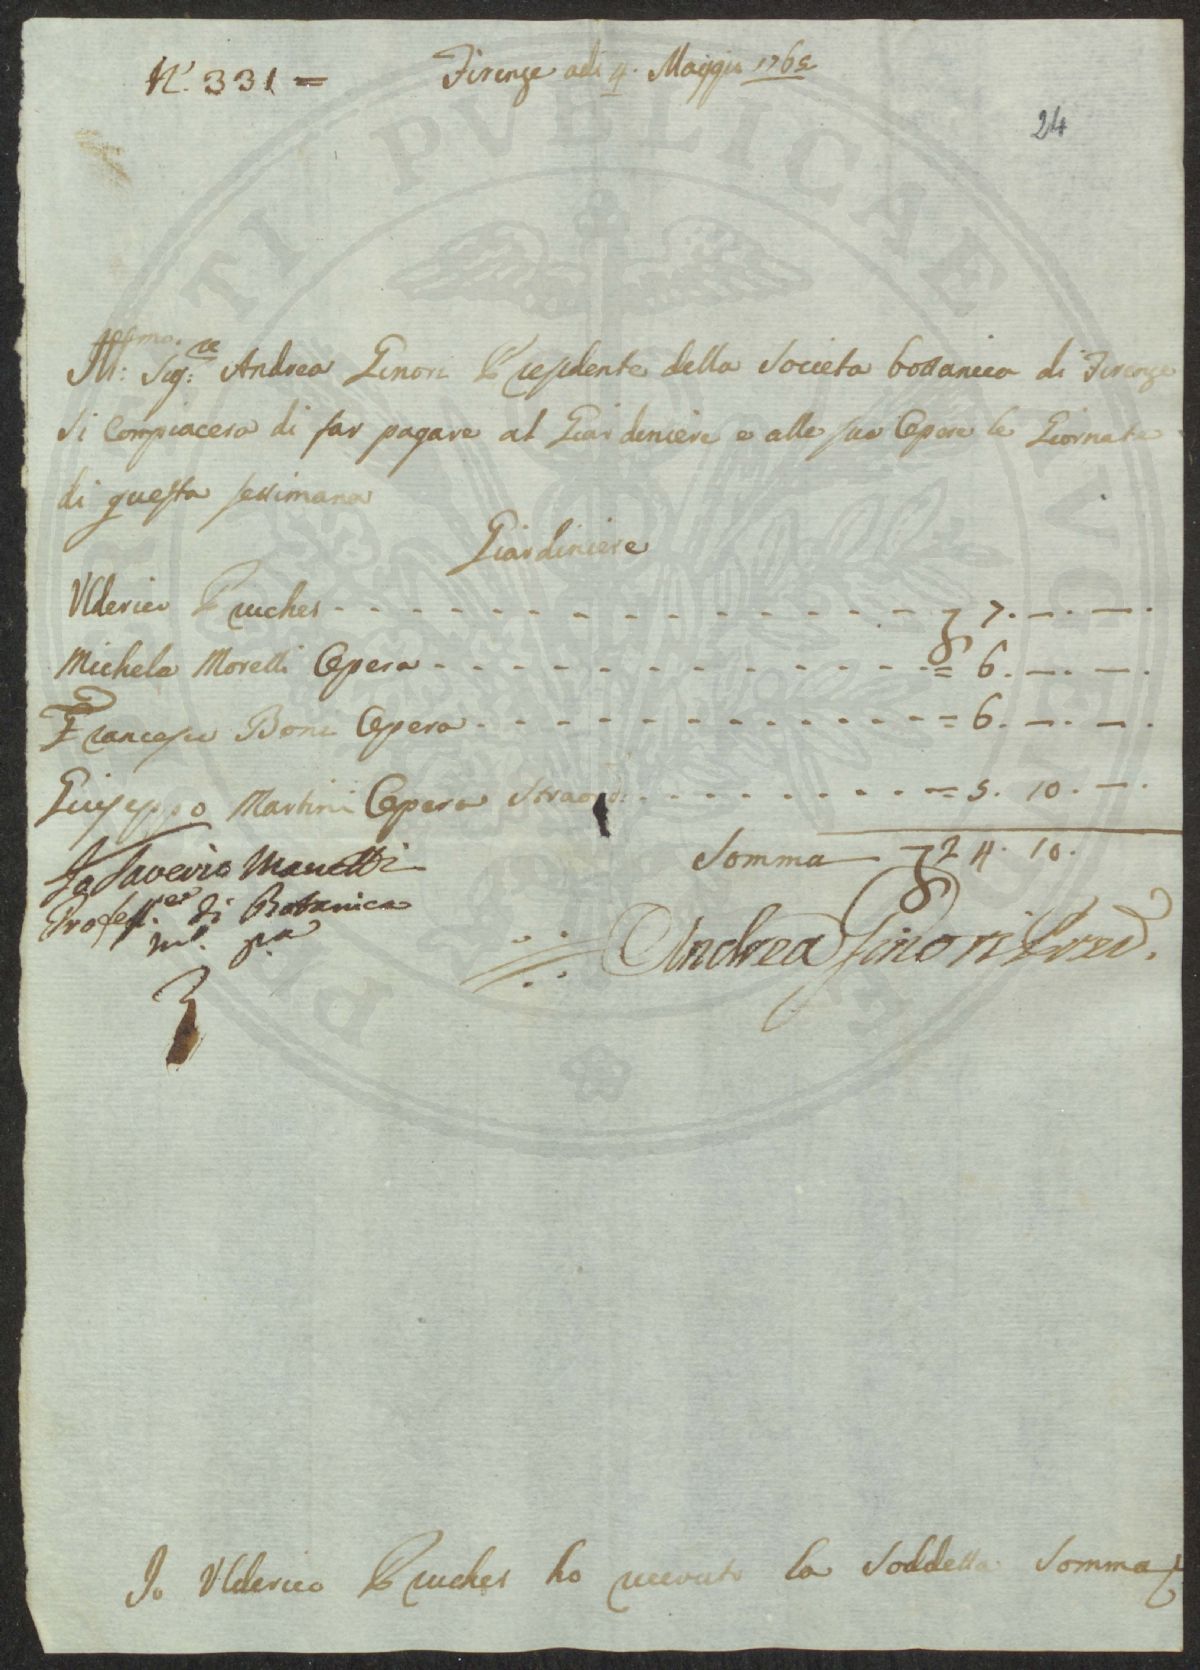 N.° 331 =
Firenze adi 4. Maggio 1765
24
Ill:mo Sig:re Andrea Ginori Presidente della Societa bottanica di Firenze
si Compiacera di far pagare al Giardiniere e alle sue Opere le Giornate
di questa settimana
Giardiniere
Ulderico Pruches - - - - - - - - - - - - - - - - 7. —. —.
Michele Moretti Opera - - - - - - - - - - - - - = 6. —. —.
Francesco Boni Opera - - - - - - - - - - - - = 6. —. —.
Giuseppo Martini Opera Straord: - - - - - - - - = 5. 10. —.
Somma 24. 10.
Saverio Manetti
Profess.er di Botanica
m.o p.a
Andrea Ginori Pred.
Io Ulderico Pruches ho riceuto la Soddetta Somma